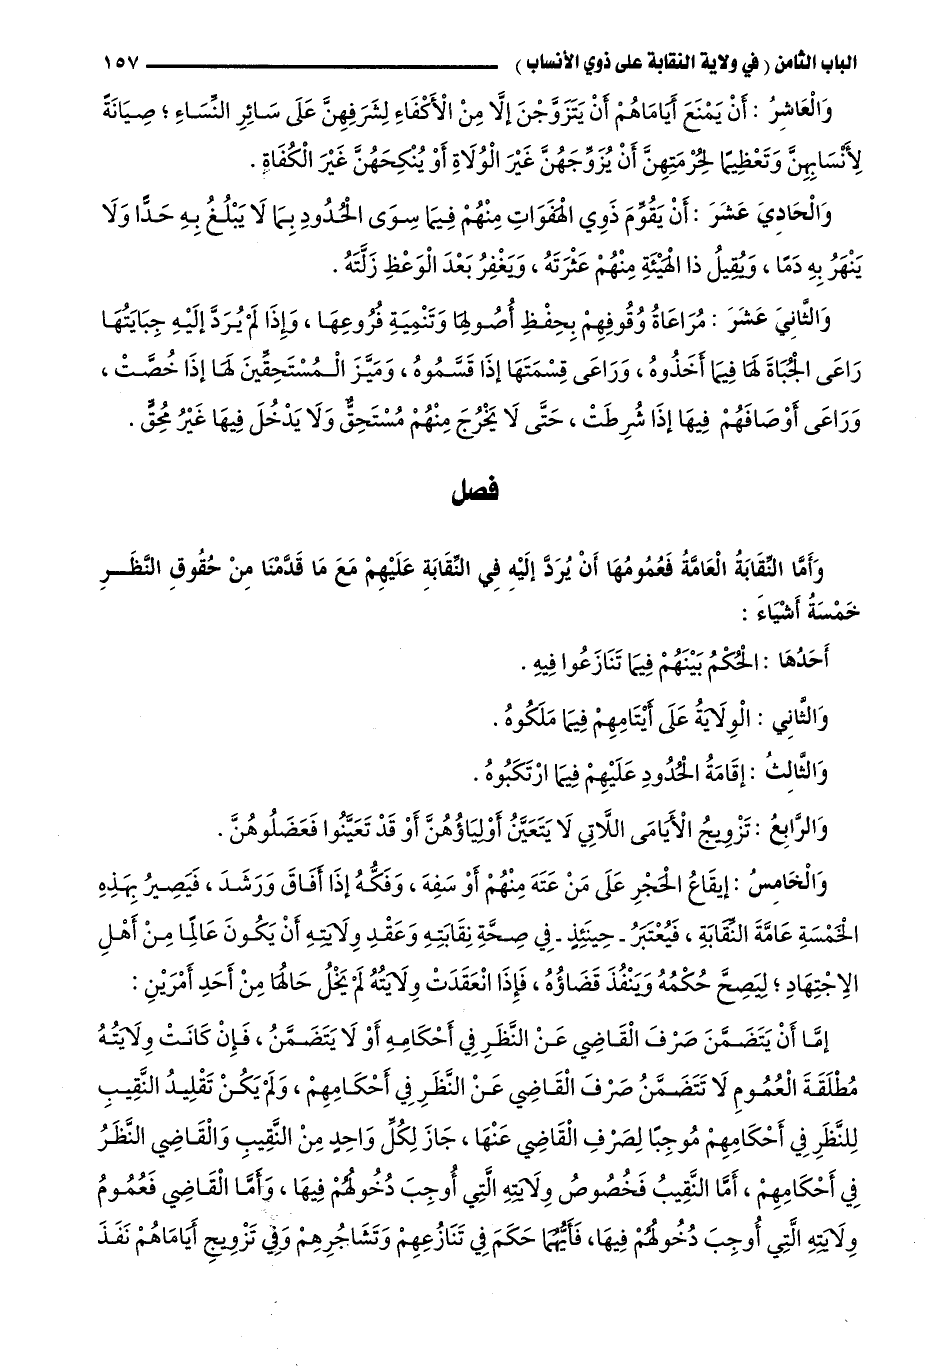 الباب الثامن ( في ولاية النقابة على ذوي الأنساب ) ١٥٧
وَالْعَاشِرُ : أَنْ يَمْنَعَ أَيَامَاهُمْ أَنْ يَتَزَوَّجْنَ إلَّا مِنْ الْأَكْفَاءِ لِشَرَفِهِنَّ عَلَى سَائِرِ النِّسَاءِ ؛ صِيَانَةً
لِأَنْسَابِهِنَّ وَتَعْظِيمًا لِحُرْمَتِهِنَّ أَنْ يُزَوِّجَهُنَّ غَيْرَ الْوُلَاةِ أَوْ يُنْكِحَهُنَّ غَيْرَ الْكُفَاةِ .
وَالْحَادِيَ عَشَرَ : أَنْ يَقُوِّمَ ذَوِي الْهَفَوَاتِ مِنْهُمْ فِيمَا سِوَى الْحُدُودِ بِمَا لَا يَبْلُغُ بِهِ حَدًّا وَلَا
يَنْهَرُ بِهِ دَمًا ، وَيُقِيلُ ذا الْهَيْئَةِ مِنْهُمْ عَثْرَتَهُ ، وَيَغْفِرُ بَعْدَ الْوَعْظِ زَلَّتَهُ .
وَالثَّانِيَ عَشَرَ : مُرَاعَاةُ وُقُوفِهِمْ بِحِفْظِ أُصُولِهَا وَتَنْمِيَةِ فُرُوعِهَا ، وَإِذَا لَمْ يُرَدَّ إلَيْهِ جِبَايَتُهَا
رَاعَى الْجُبَاةَ لَهَا فِيمَا أَخَذُوهُ ، وَرَاعَى قِسْمَتَهَا إذَا قَسَّمُوهُ ، وَمَيَّزَ الْمُسْتَحِقِّينَ لَهَا إذَا خُصَّتْ ،
وَرَاعَى أَوْصَافَهُمْ فِيهَا إذَا شُرِطَتْ ، حَتَّى لَا يَخْرُجَ مِنْهُمْ مُسْتَحِقٌّ وَلَا يَدْخُلَ فِيهَا غَيْرُ مُحِقٍّ .
فصل
وَأَمَّا النِّقَابَةُ الْعَامَّةُ فَعُمُومُهَا أَنْ يُرَدَّ إلَيْهِ فِي النِّقَابَةِ عَلَيْهِمْ مَعَ مَا قَدَّمْنَا مِنْ حُقُوقِ النَّظَرِ
خَمْسَةُ أَشْيَاءَ :
أَحَدُهَا : الْحُكْمُ بَيْنَهُمْ فِيمَا تَنَازَعُوا فِيهِ .
وَالثَّانِي : الْوِلَايَةُ عَلَى أَيْتَامِهِمْ فِيمَا مَلَكُوهُ .
وَالثَّالِثُ : إقَامَةُ الْحُدُودِ عَلَيْهِمْ فِيمَا ارْتَكَبُوهُ .
وَالرَّابِعُ : تَزْوِيجُ الْأَيَامَى اللَّاتِي لَا يَتَعَيَّنُ أَوْلِيَاؤُهُنَّ أَوْ قَدْ تَعَيَّنُوا فَعَضَلُوهُنَّ .
وَالْخَامِسُ : إيقَاعُ الْحَجْرِ عَلَى مَنْ عَتَهَ مِنْهُمْ أَوْ سَفِهَ ، وَفَكُّهُ إذَا أَفَاقَ وَرَشَدَ ، فَيَصِيرُ بِهَذِهِ
الْخَمْسَةِ عَامَّةَ النِّقَابَةِ ، فَيُعْتَبَرُ ـ حِينَئِذٍ ـ فِي صِحَّةِ نِقَابَتِهِ وَعَقْدِ وِلَايَتِهِ أَنْ يَكُونَ عَالِمًا مِنْ أَهْلِ
الِاجْتِهَادِ ؛ لِيَصِحَّ حُكْمُهُ وَيَنْفُذَ قَضَاؤُهُ ، فَإِذَا انْعَقَدَتْ وِلَايَتُهُ لَمْ يَخْلُ حَالُهَا مِنْ أَحَدِ أَمْرَيْنِ :
إمَّا أَنْ يَتَضَمَّنَ صَرْفَ الْقَاضِي عَنْ النَّظَرِ فِي أَحْكَامِهِ أَوْ لَا يَتَضَمَّنُ ، فَإِنْ كَانَتْ وِلَايَتُهُ
مُطْلَقَةَ الْعُمُومِ لَا تَتَضَمَّنُ صَرْفَ الْقَاضِي عَنْ النَّظَرِ فِي أَحْكَامِهِمْ ، وَلَمْ يَكُنْ تَقْلِيدُ النَّقِيبِ
لِلنَّظَرِ فِي أَحْكَامِهِمْ مُوجِبًا لِصَرْفِ الْقَاضِي عَنْهَا ، جَازَ لِكُلِّ وَاحِدٍ مِنْ النَّقِيبِ وَالْقَاضِي النَّظَرُ
فِي أَحْكَامِهِمْ ، أَمَّا النَّقِيبُ فَخُصُوصُ وِلَايَتِهِ الَّتِي أُوجِبَ دُخُولُهُمْ فِيهَا ، وَأَمَّا الْقَاضِي فَعُمُومُ
وِلَايَتِهِ الَّتِي أُوجِبَ دُخُولُهُمْ فِيهَا، فَأَيُّهُمَا حَكَمَ فِي تَنَازُعِهِمْ وَتَشَاجُرِهِمْ وَفِي تَزْوِيجِ أَيَامَاهُمْ نَفَذَ